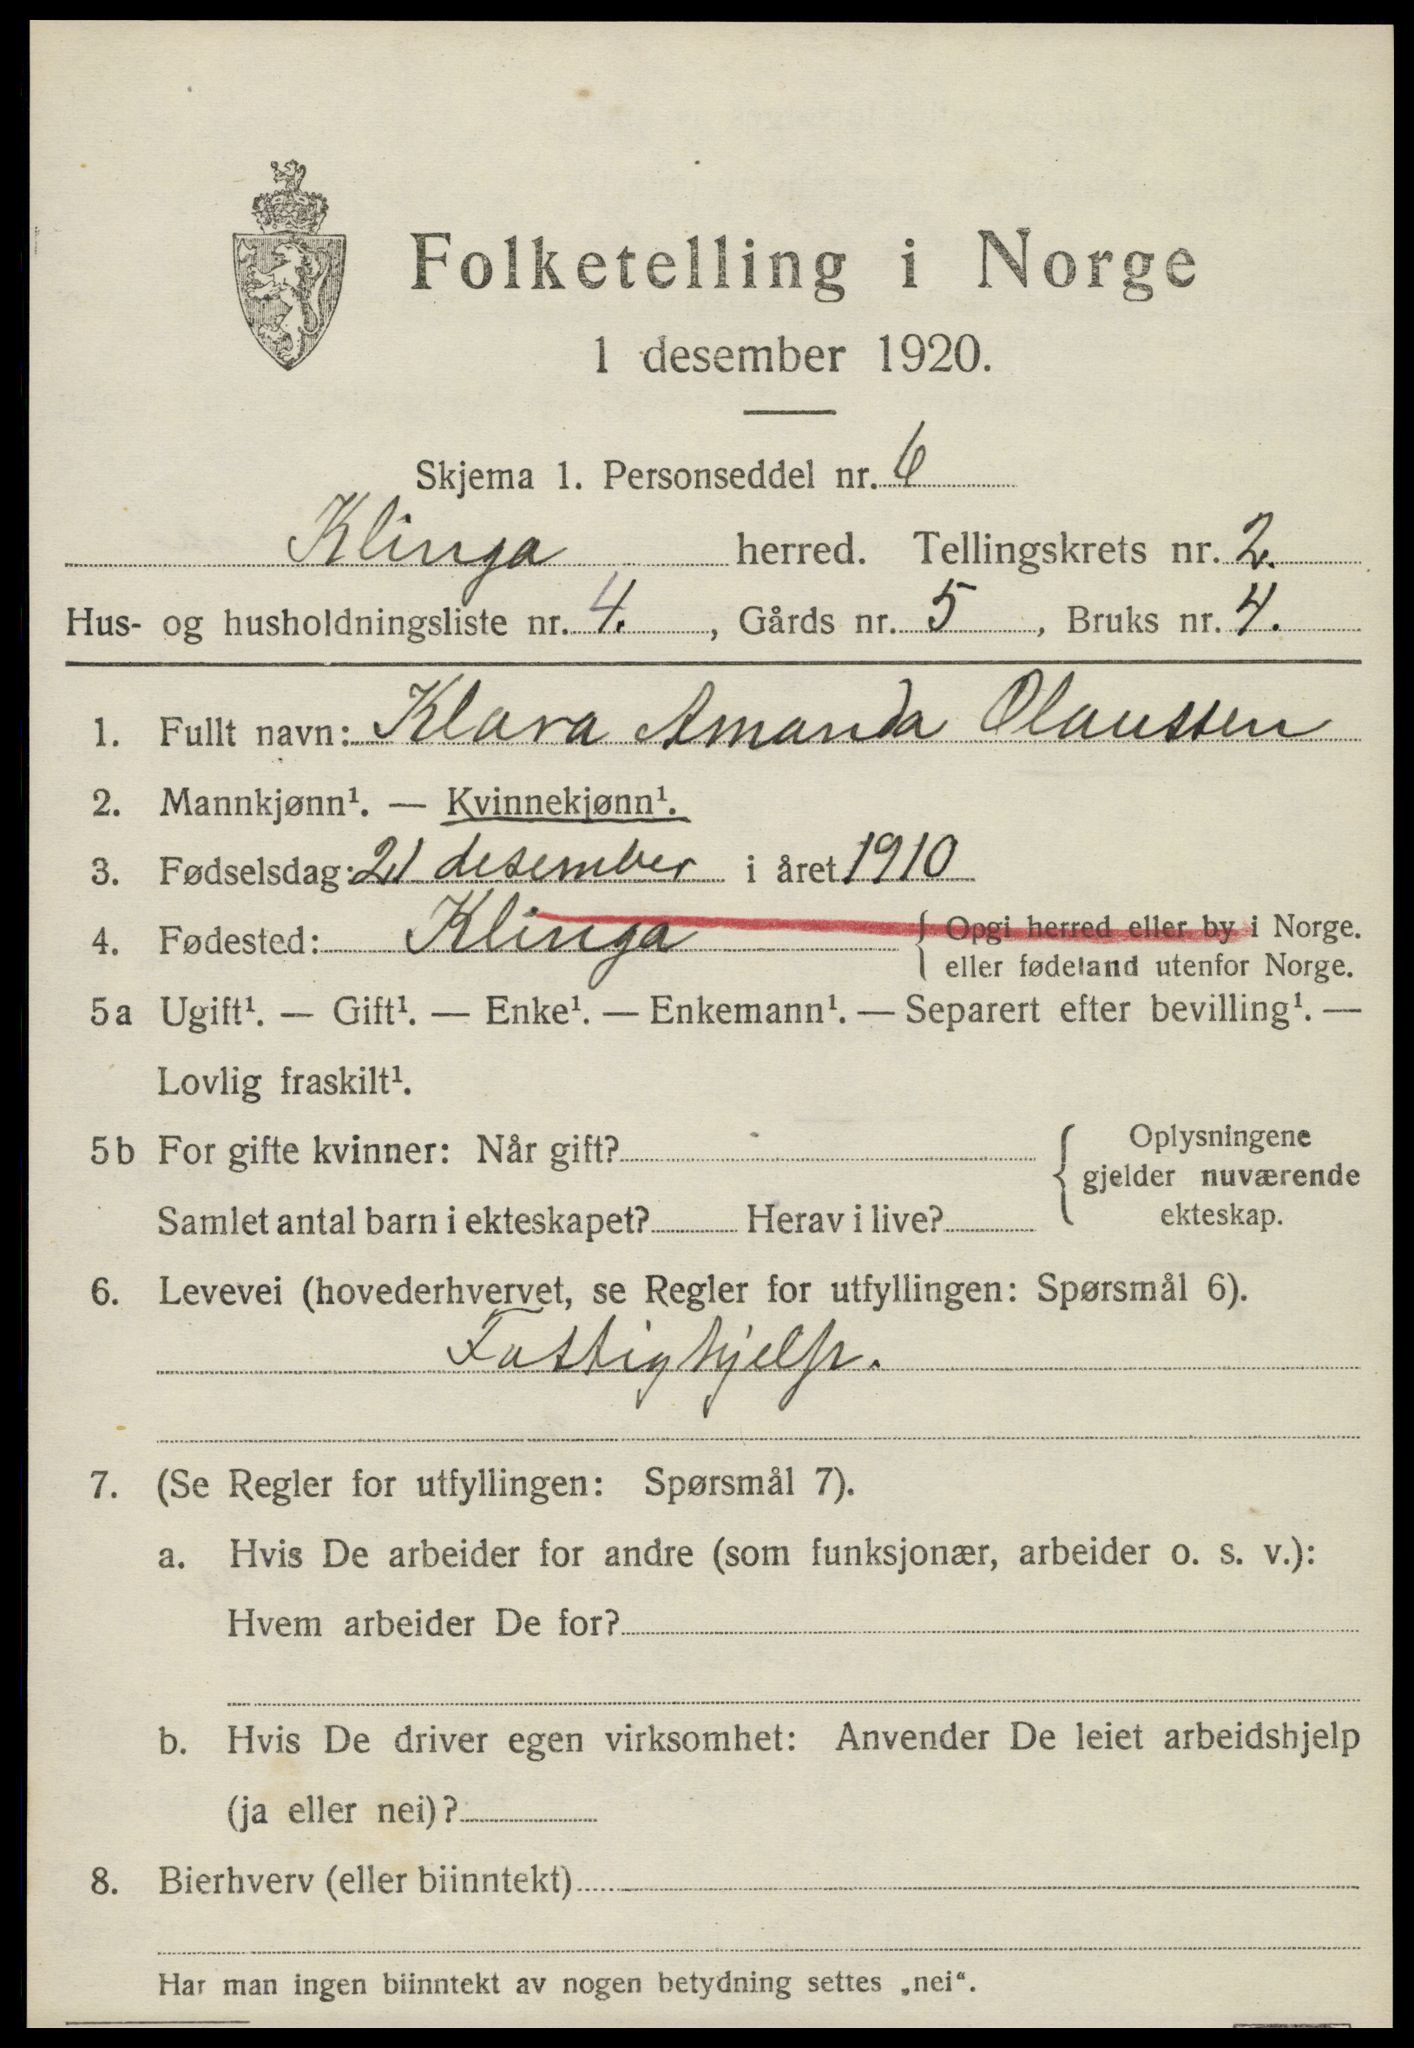 Folketelling i Norge
1 desember 1920.
Skjema 1. Personseddel nr. 6
Klinga herred. Tellingskrets nr. 2.
Hus- og husholdningsliste nr. 4. , Gårds nr. 5 , Bruks nr. 4.
1. Fullt navn: Klara Amanda Olaussen
2. Mannkjønn¹. — Kvinnekjønn¹.
3. Fødselsdag: 21 desember i året 1910
4. Fødested: Klinga { Opgi herred eller by i Norge.
eller fødeland utenfor Norge.
5a Ugift¹. — Gift¹. — Enke¹. — Enkemann¹. — Separert efter bevilling¹. —
Lovlig fraskilt¹.
5b For gifte kvinner: Når gift? { Oplysningene
gjelder nuværende
Samlet antal barn i ekteskapet? Herav i live? ekteskap.
6. Levevei (hovederhvervet, se Regler for utfyllingen: Spørsmål 6).
Fattighjelp.
7. (Se Regler for utfyllingen: Spørsmål 7).
a. Hvis De arbeider for andre (som funksjonær, arbeider o. s. v.):
Hvem arbeider De for?
b. Hvis De driver egen virksomhet: Anvender De leiet arbeidshjelp
(ja eller nei)?
8. Bierhverv (eller biinntekt)
Har man ingen biinntekt av nogen betydning settes „nei“.